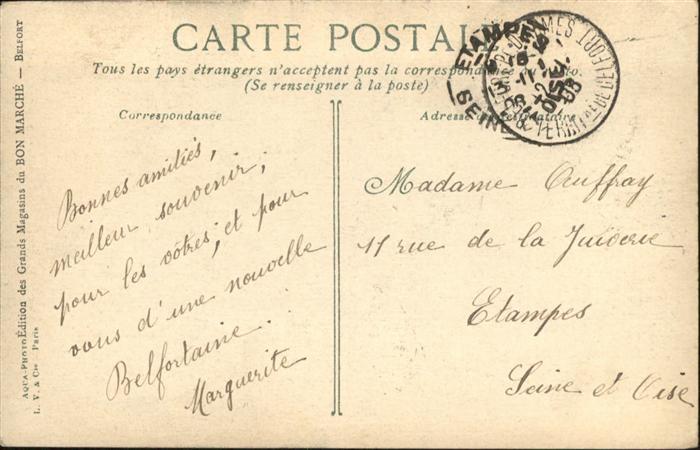 CARTE POSTALE
Tous les pays étrangers n'acceptent pas la correspondance
(Se renseigner à la poste)
Correspondance
Bonnes amitiés,
meilleur souvenir,
pour les vôtres, et pour
vous d'une nouvelle
Belfortaine.
Marguerite
Madame Auffray
11 rue de la Juiverie
Etampes
Seine et Oise
ETAMPES
SEINE
OISE
AQUA-PHOTO Édition des Grands Magasins du BON MARCHÉ — BELFORT
L. V. & Cie Paris